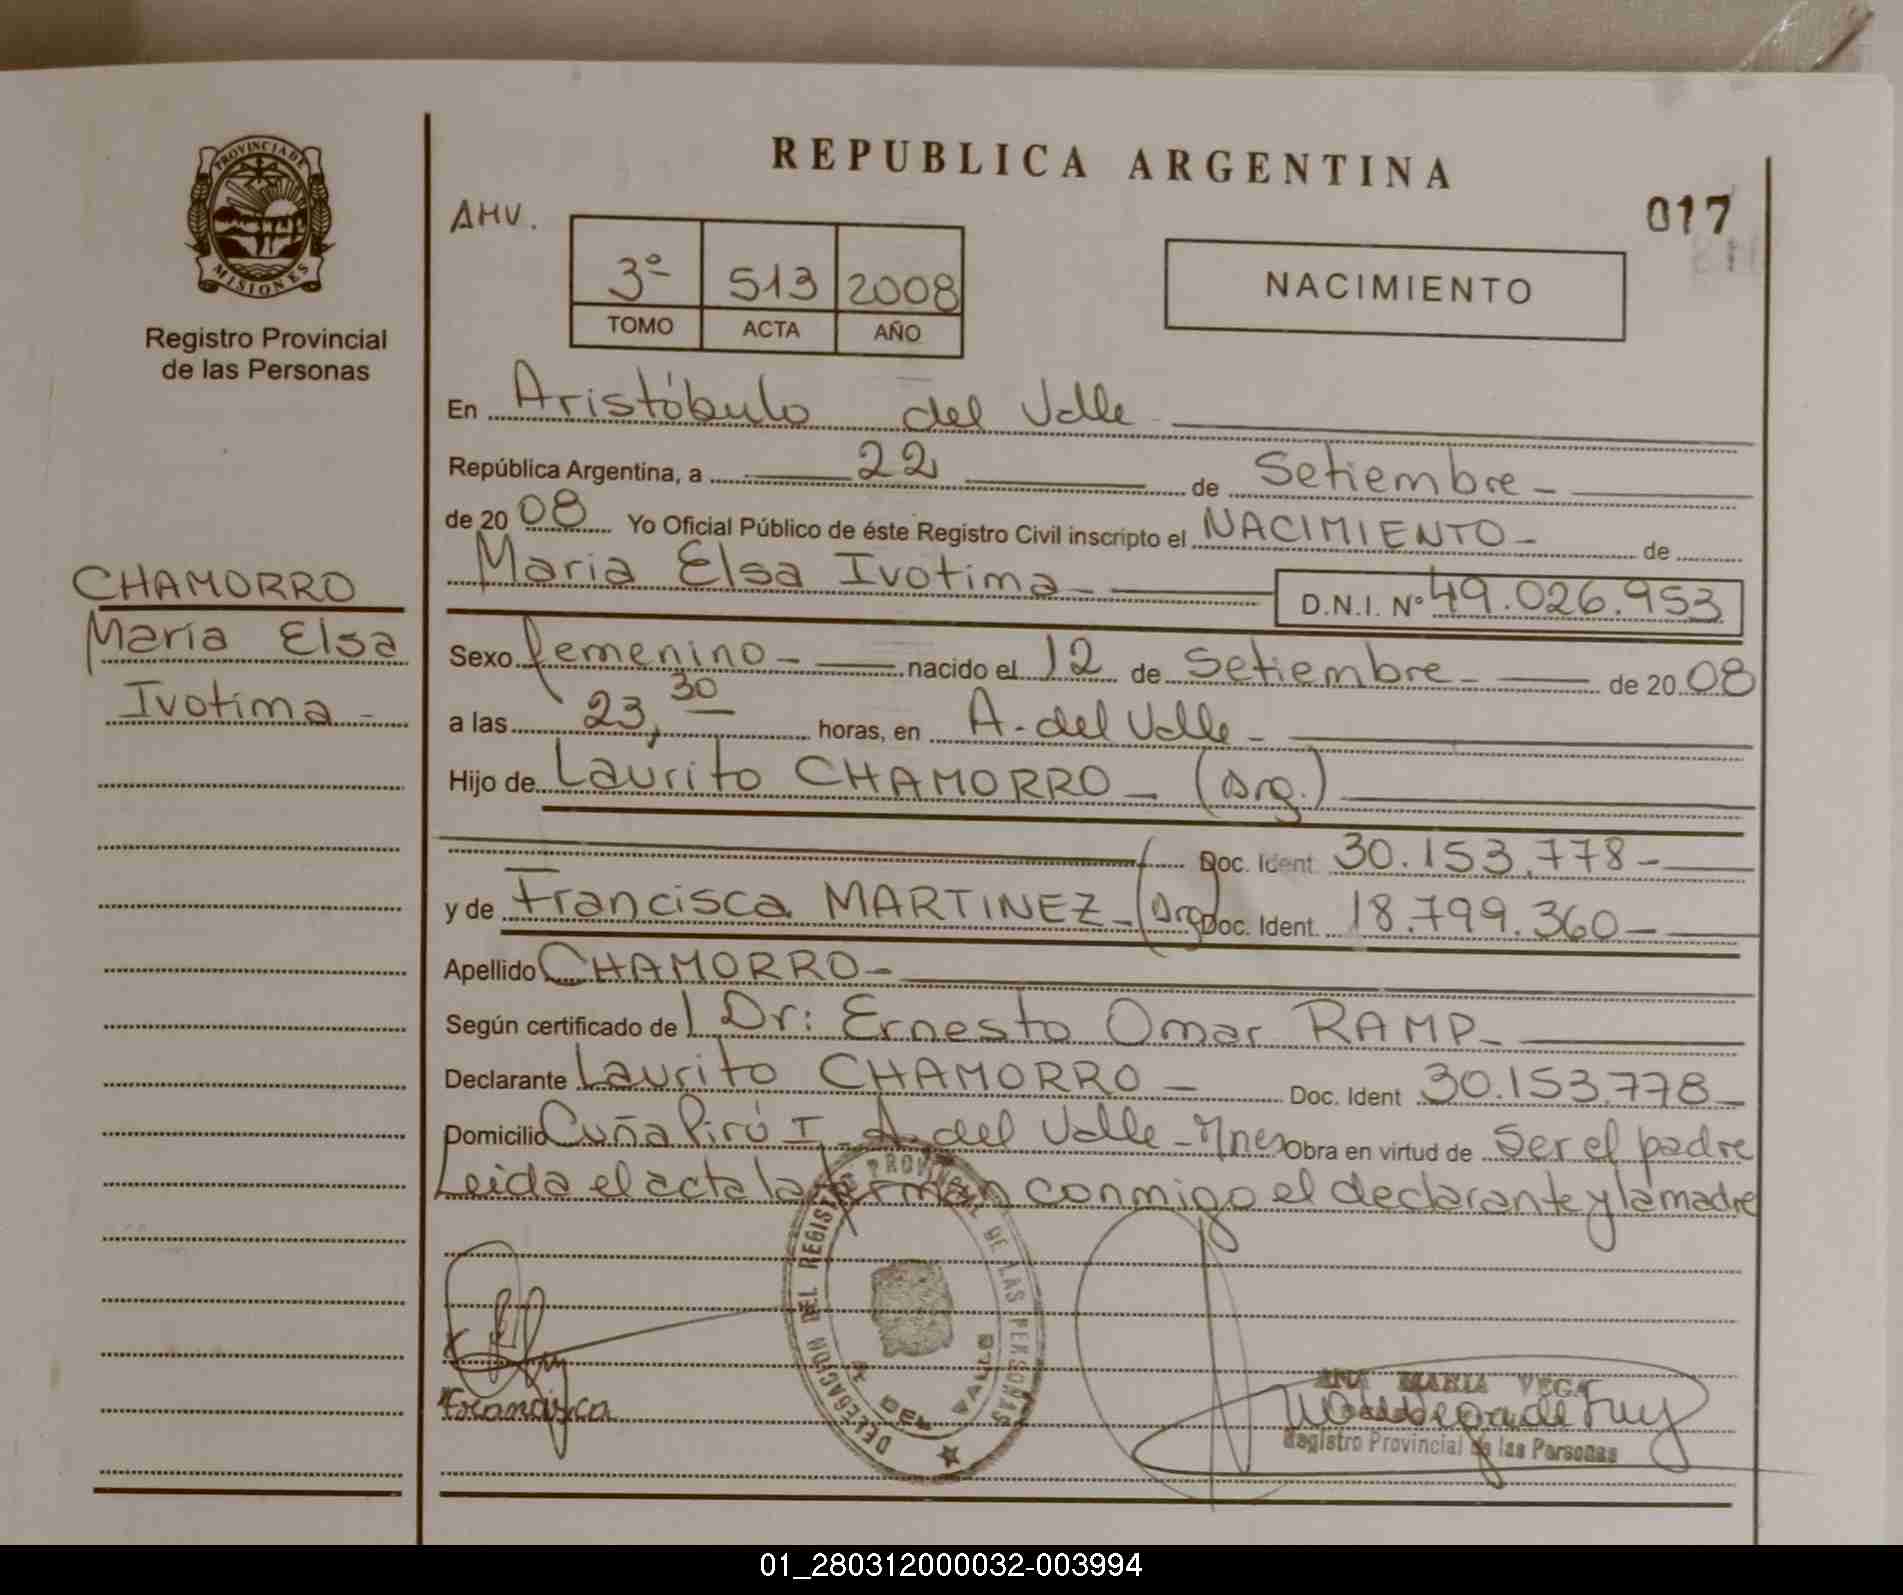 PROVINCIA DE
MISIONES
Registro Provincial
de las Personas
CHAMORRO
María Elsa
Ivotima -
REPUBLICA ARGENTINA
017
AMV.
3º 513 2008
TOMO ACTA AÑO
NACIMIENTO
En Aristóbulo del Valle
República Argentina, a 22 de Setiembre -
de 20 08 Yo Oficial Público de éste Registro Civil inscripto el NACIMIENTO - de
Maria Elsa Ivotima - D.N.I. Nº 49.026.953
Sexo femenino - nacido el 12 de Setiembre - de 20 08
a las 23,30 horas, en A. del Valle -
Hijo de Laurito CHAMORRO - (Arg.)
Doc. Ident. 30.153.778 -
y de Francisca MARTINEZ - (Arg) Doc. Ident. 18.799.360 -
Apellido CHAMORRO -
Según certificado del Dr: Ernesto Omar RAMP -
Declarante Laurito CHAMORRO - Doc. Ident 30.153.778 -
Domicilio Cuña Pirú I - A. del Valle - Mnes Obra en virtud de Ser el padre
Leida el acta la firman conmigo el declarante y la madre
DELEGACION DEL REGISTRO PROVINCIAL DE LAS PERSONAS
A. DEL VALLE
Francisca
ANA MARIA VEGA
Registro Provincial de las Personas
01_280312000032-003994